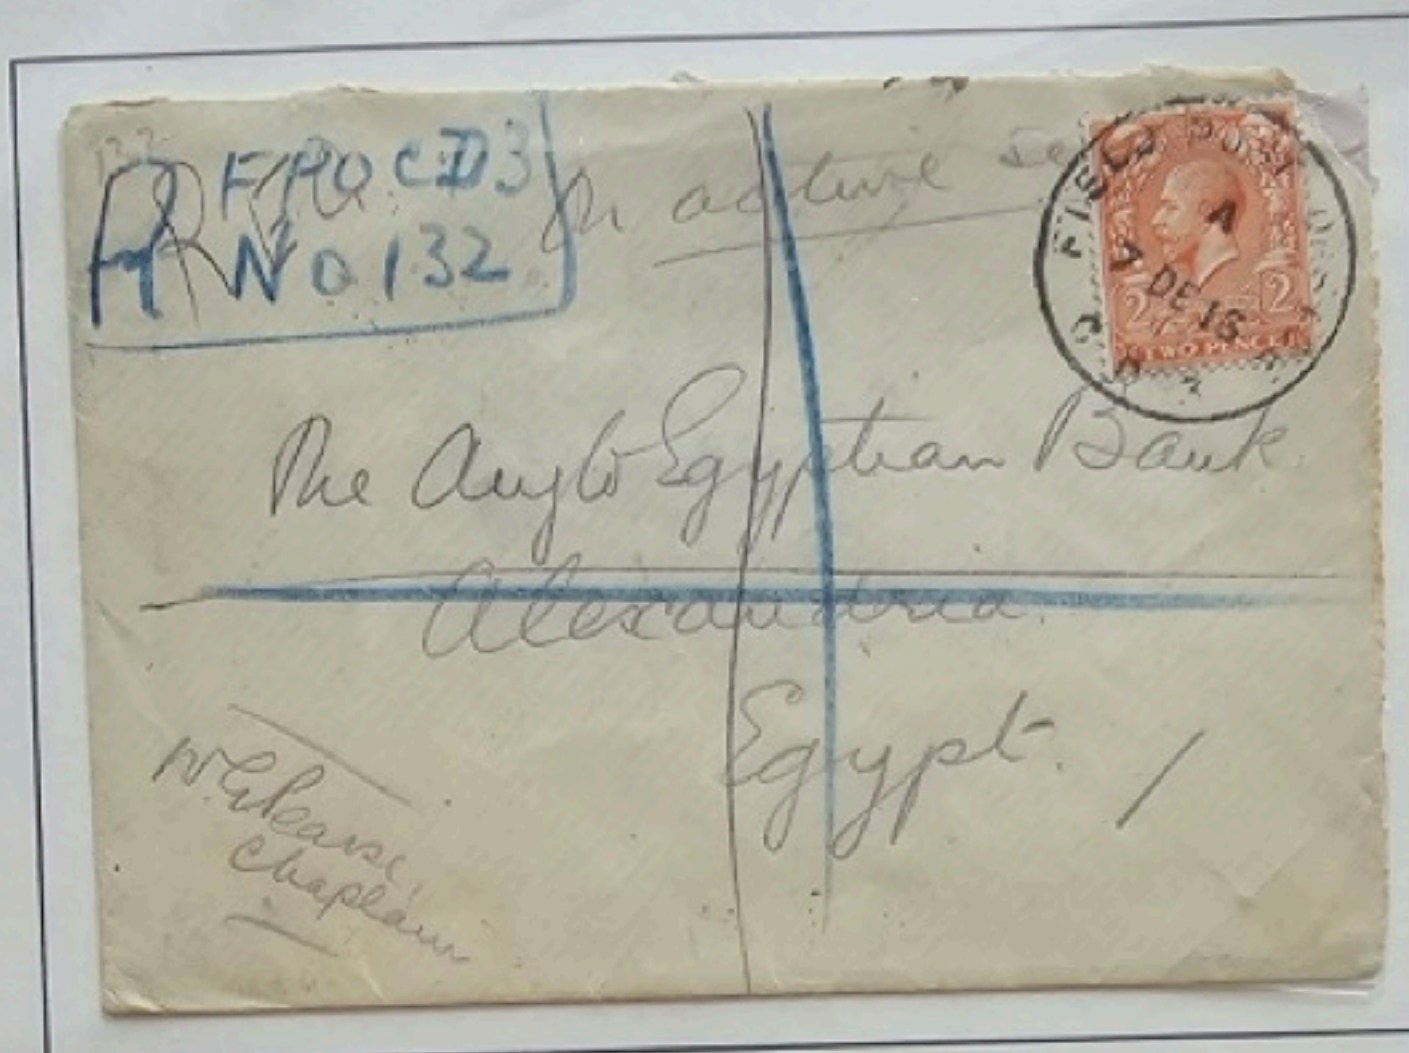 R FPO CD3
No 132
On active se
FIELD POST OFFICE
A
7 DE 16
2 2
TWO PENCE
The Anglo Egyptian Bank
Alexandria.
Egypt.
Chaplain